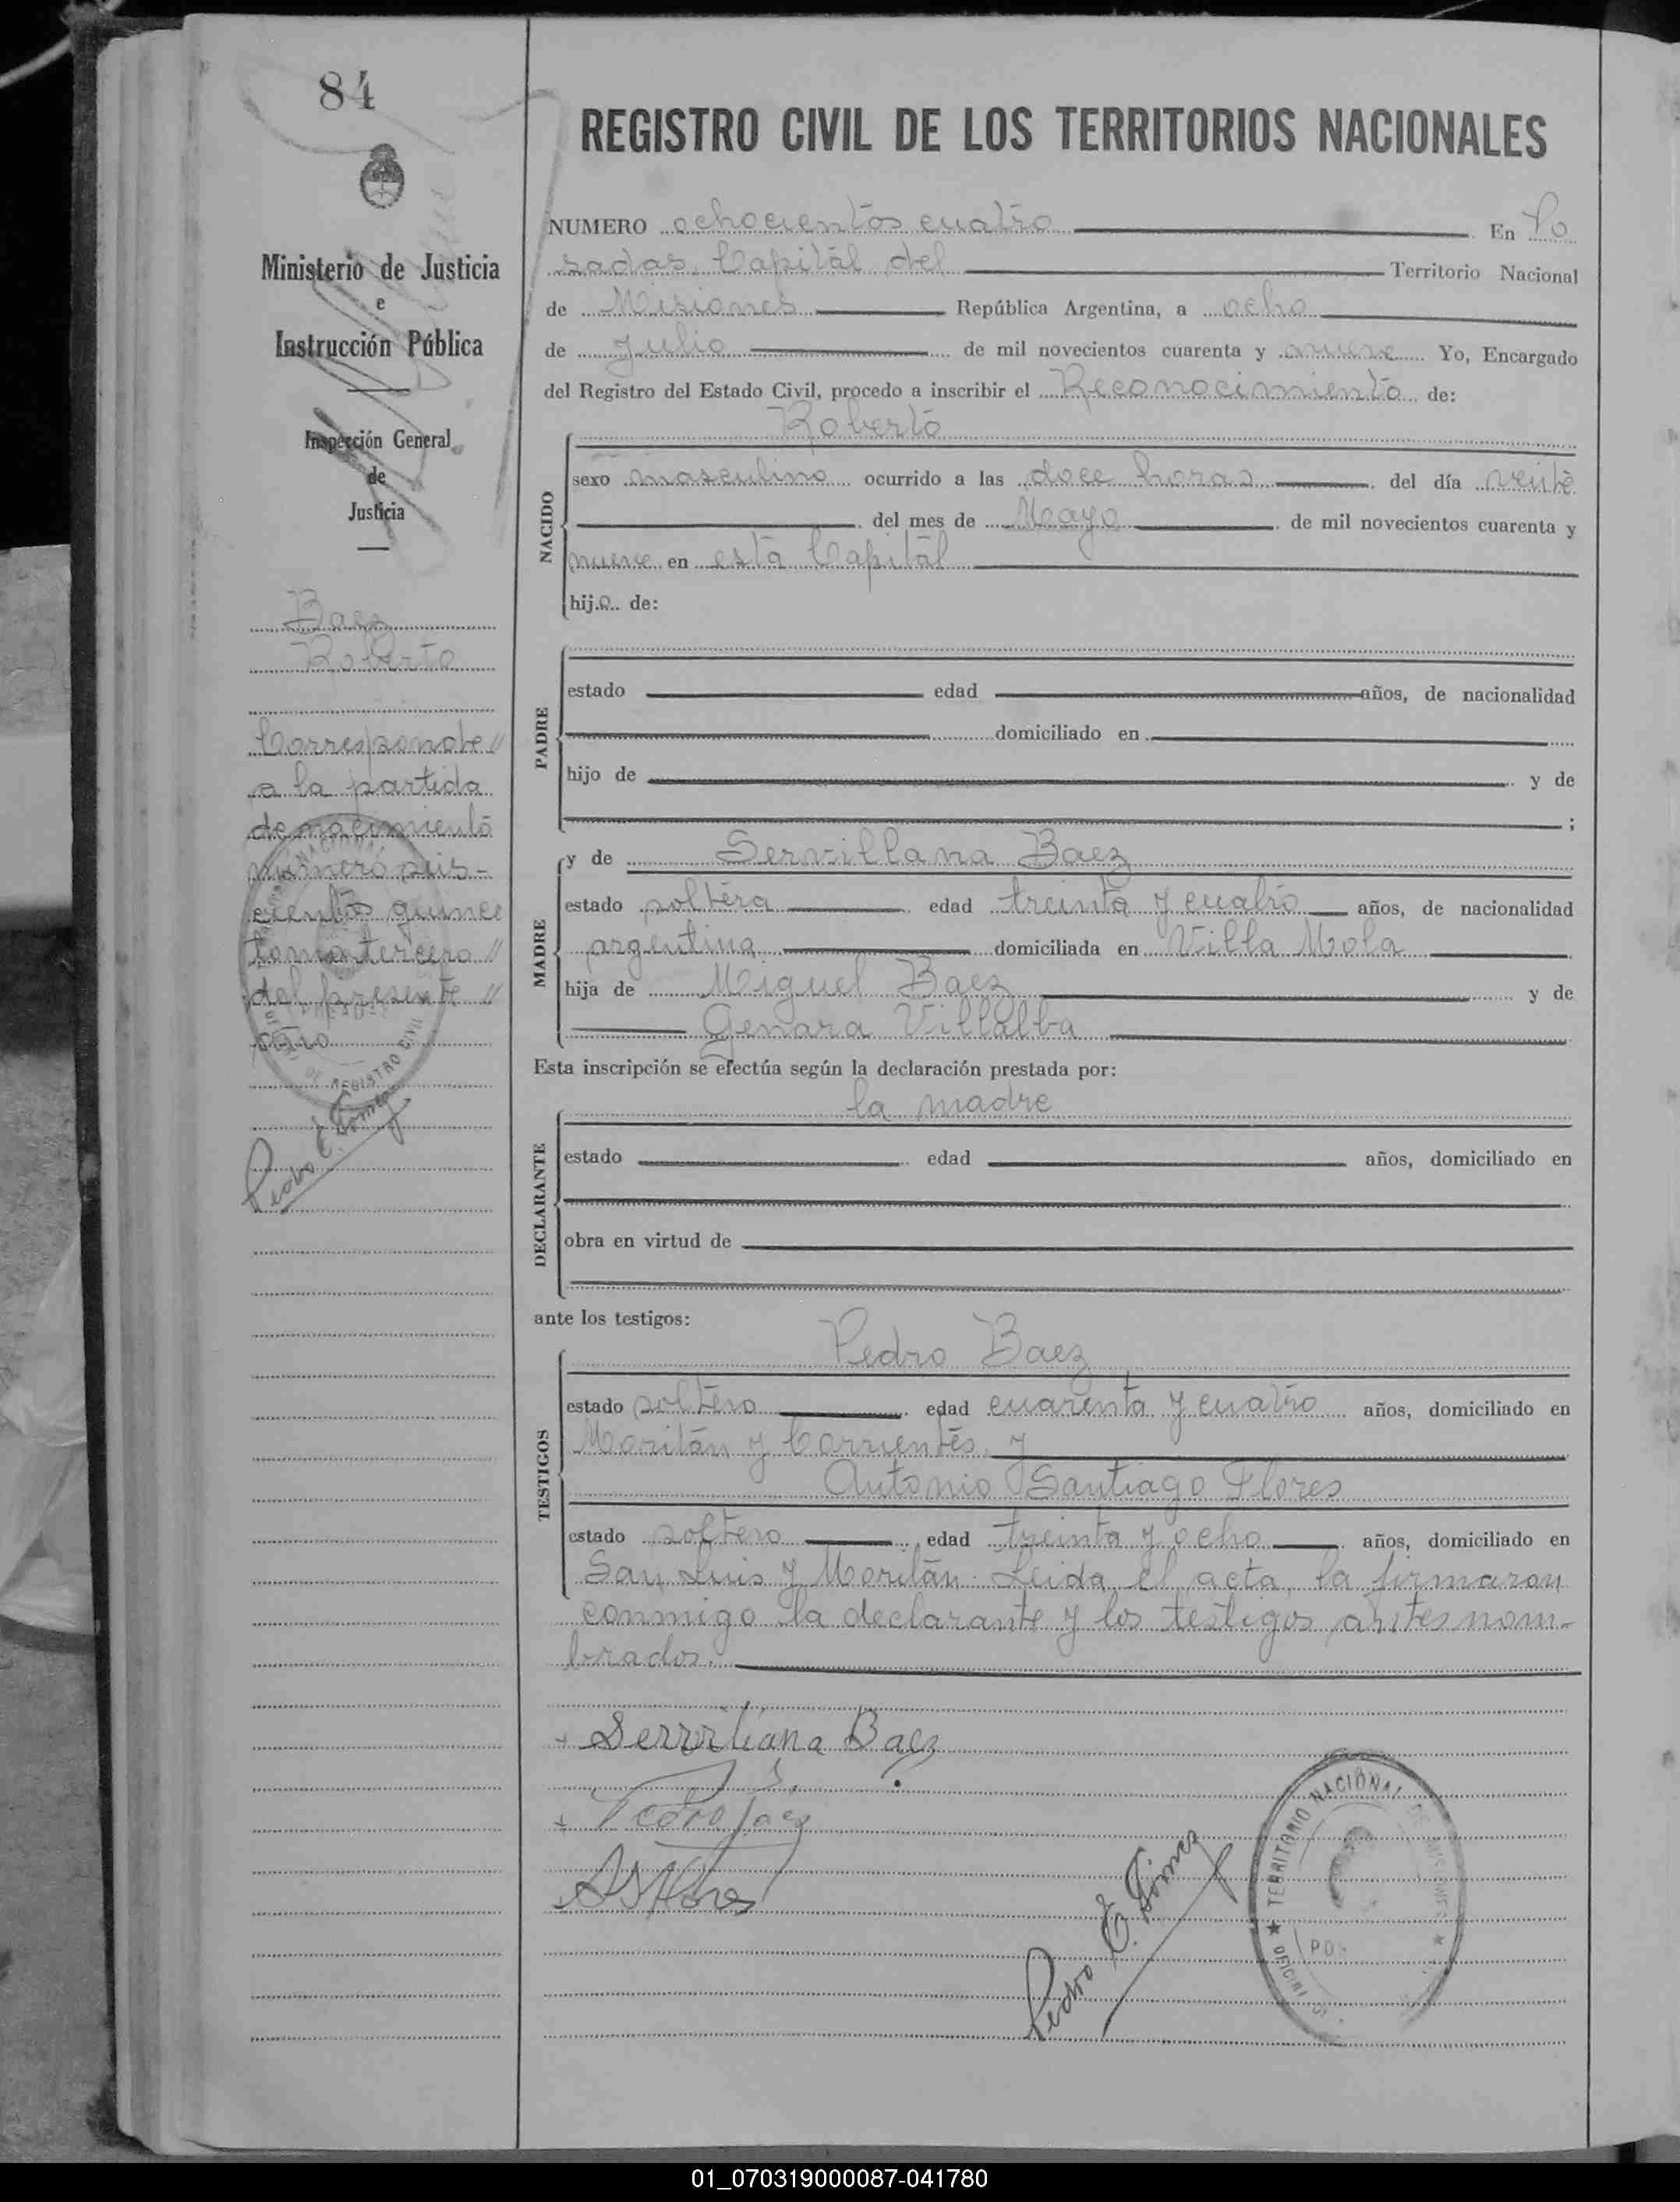 84
Ministerio de Justicia
e
Instrucción Pública
Inspección General
de
Justicia
Baez
Roberto
Corresponde //
a la partida
de nacimiento
número seis-
cientos quince
tomo tercero //
del presente //
año
Pedro E. Gómez
REGISTRO CIVIL DE LOS TERRITORIOS NACIONALES
NUMERO ochocientos cuatro En Po
sadas, Capital del Territorio Nacional
de Misiones República Argentina, a ocho
de Julio de mil novecientos cuarenta y nueve Yo, Encargado
del Registro del Estado Civil, procedo a inscribir el Reconocimiento de:
Roberto
NACIDO
sexo masculino ocurrido a las doce horas del día veinte
del mes de Mayo de mil novecientos cuarenta y
nueve en esta Capital
hij.o.. de:
PADRE
estado edad años, de nacionalidad
domiciliado en
hijo de y de
;
MADRE
y de Servillana Baez
estado soltera edad treinta y cuatro años, de nacionalidad
argentina domiciliada en Villa Mola
hija de Miguel Baez y de
Genara Villalba
Esta inscripción se efectúa según la declaración prestada por:
la madre
DECLARANTE
estado edad años, domiciliado en
obra en virtud de
ante los testigos:
Pedro Baez
TESTIGOS
estado soltero edad cuarenta y cuatro años, domiciliado en
Moritán y Corrientes, y
Antonio Santiago Flores
estado soltero edad treinta y ocho años, domiciliado en
San Luis y Moritán. Leida el acta, la firmaron
conmigo la declarante y los testigos antes nom-
brados.
+ Serviliana Baez
+ Pedro Baez
+ A S Flores
Pedro E. Gómez
TERRITORIO NACIONAL DE MISIONES
01_070319000087-041780